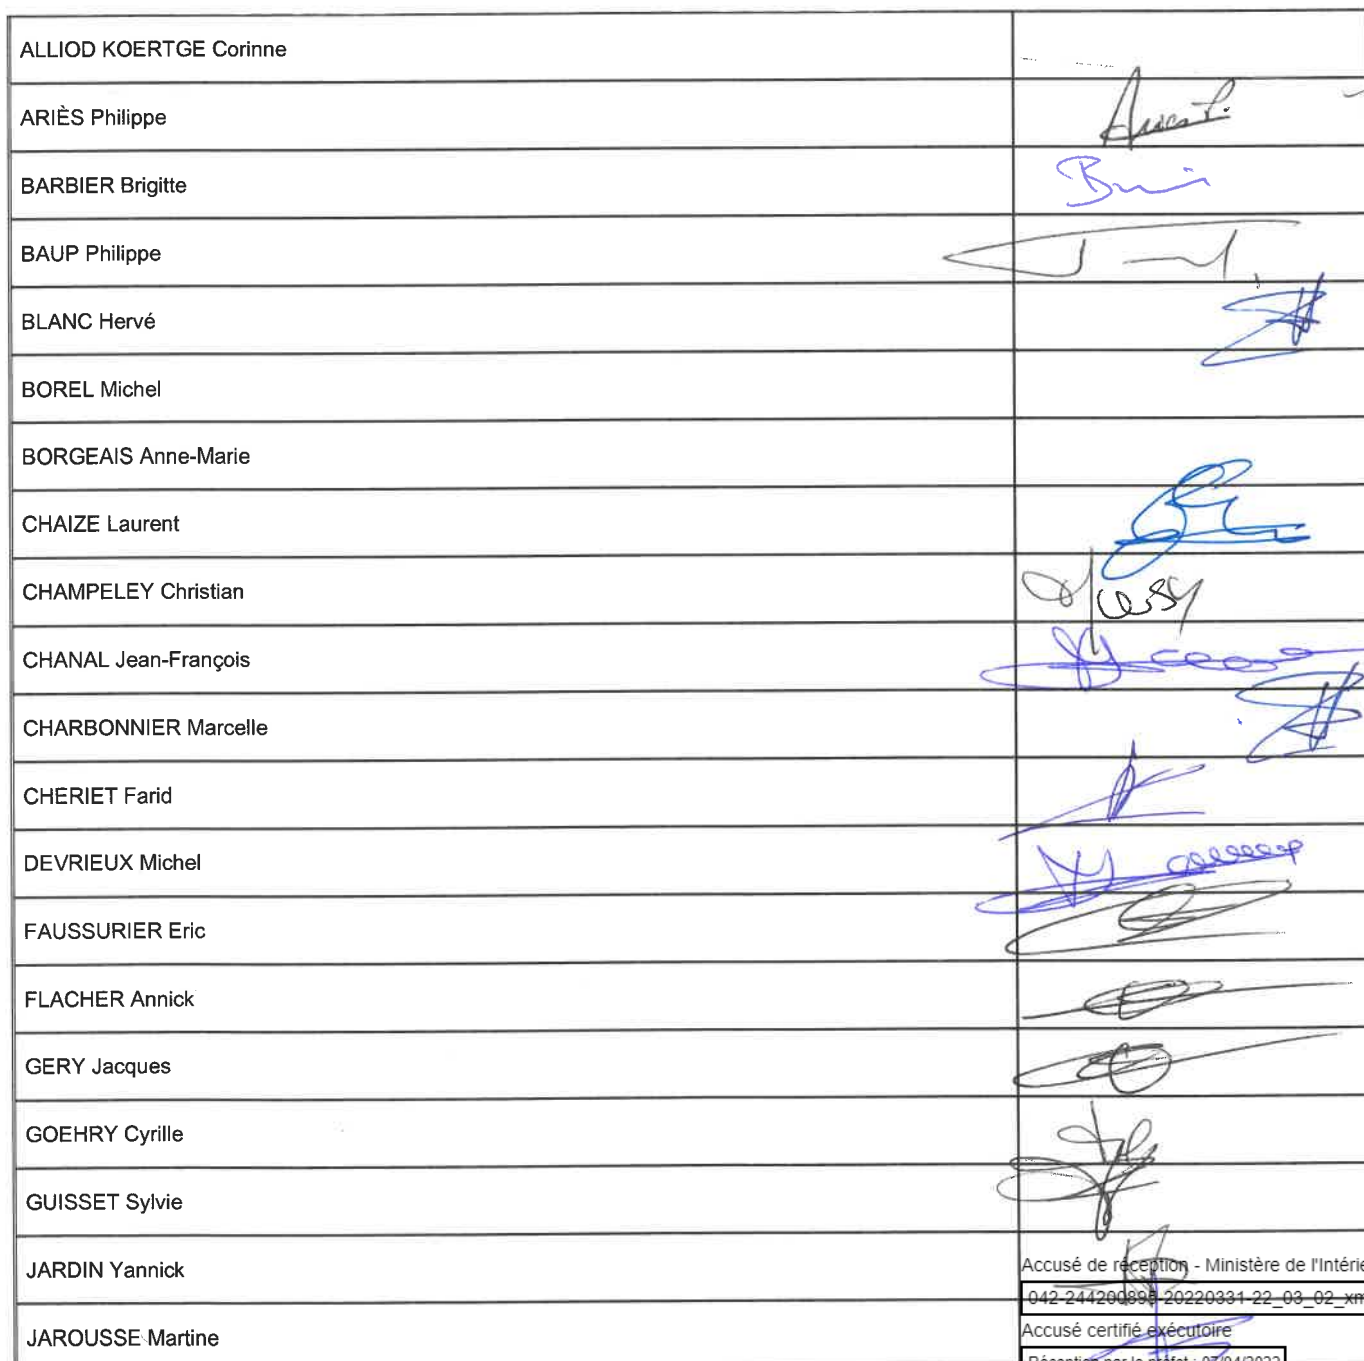 ALLIOD KOERTGE Corinne
ARIÈS Philippe
BARBIER Brigitte
BAUP Philippe
BLANC Hervé
BOREL Michel
BORGEAIS Anne-Marie
CHAIZE Laurent
CHAMPELEY Christian
CHANAL Jean-François
CHARBONNIER Marcelle
CHERIET Farid
DEVRIEUX Michel
FAUSSURIER Eric
FLACHER Annick
GERY Jacques
GOEHRY Cyrille
GUISSET Sylvie
JARDIN Yannick
Accusé de réception - Ministère de l'Intérie
042-244200895-20220331-22_03_02_xm
JAROUSSE Martine
Accusé certifié exécutoire
Réception par le préfet : 07/04/2022